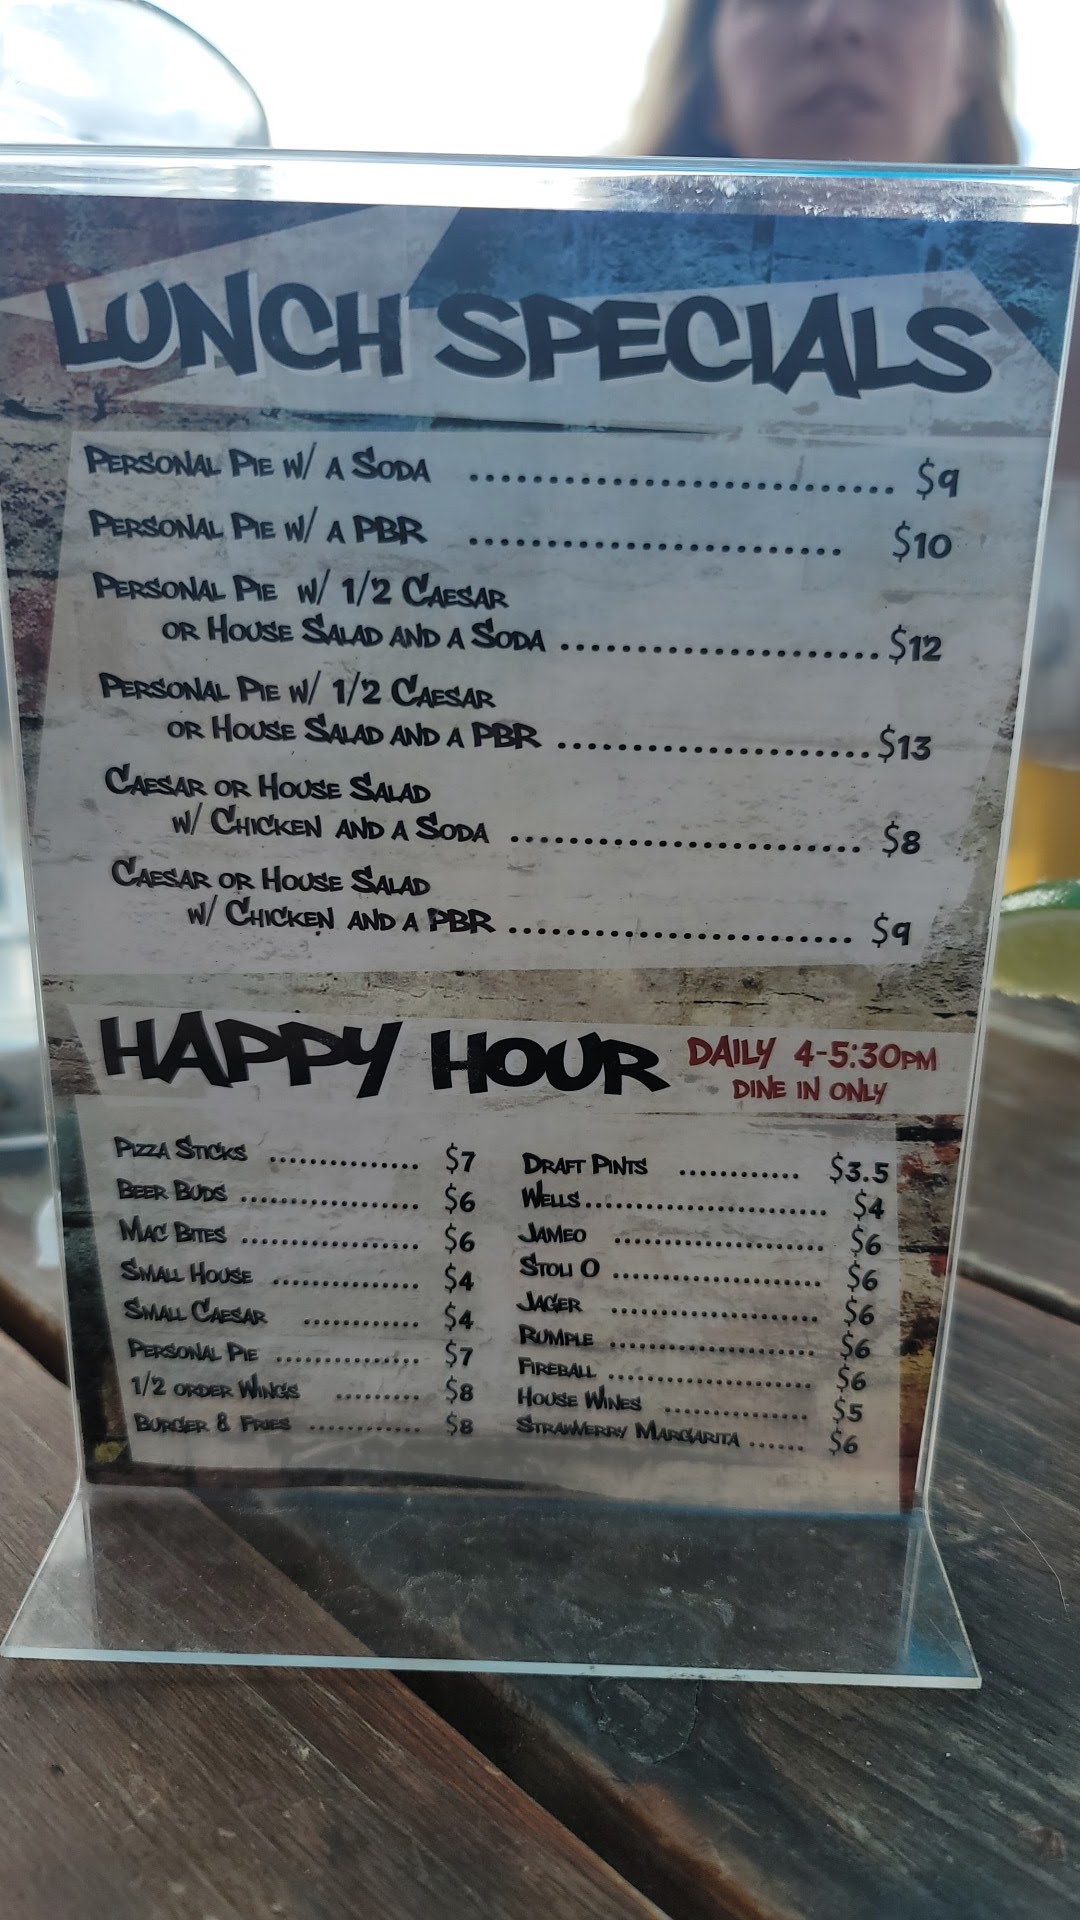 LUNCH SPECIALS
PERSONAL PIE W/ A SODA ................................ $9
PERSONAL PIE W/ A PBR ............................ $10
PERSONAL PIE W/ 1/2 CAESAR
OR HOUSE SALAD AND A SODA ........................ $12
PERSONAL PIE W/ 1/2 CAESAR
OR HOUSE SALAD AND A PBR ........................ $13
CAESAR OR HOUSE SALAD
W/ CHICKEN AND A SODA .......................... $8
CAESAR OR HOUSE SALAD
W/ CHICKEN AND A PBR .......................... $9
HAPPY HOUR DAILY 4-5:30PM
DINE IN ONLY
PIZZA STICKS ............... $7
BEER BUDS .................. $6
MAC BITES .................. $6
SMALL HOUSE ............... $4
SMALL CAESAR ............ $4
PERSONAL PIE ............... $7
1/2 ORDER WINGS ......... $8
BURGER & FRIES ............ $8
DRAFT PINTS ............ $3.5
WELLS ........................ $4
JAMEO ..................... $6
STOLI O ..................... $6
JAGER ..................... $6
RUMPLE ..................... $6
FIREBALL ..................... $6
HOUSE WINES ............... $5
STRAWVERRY MARGARITA ...... $6